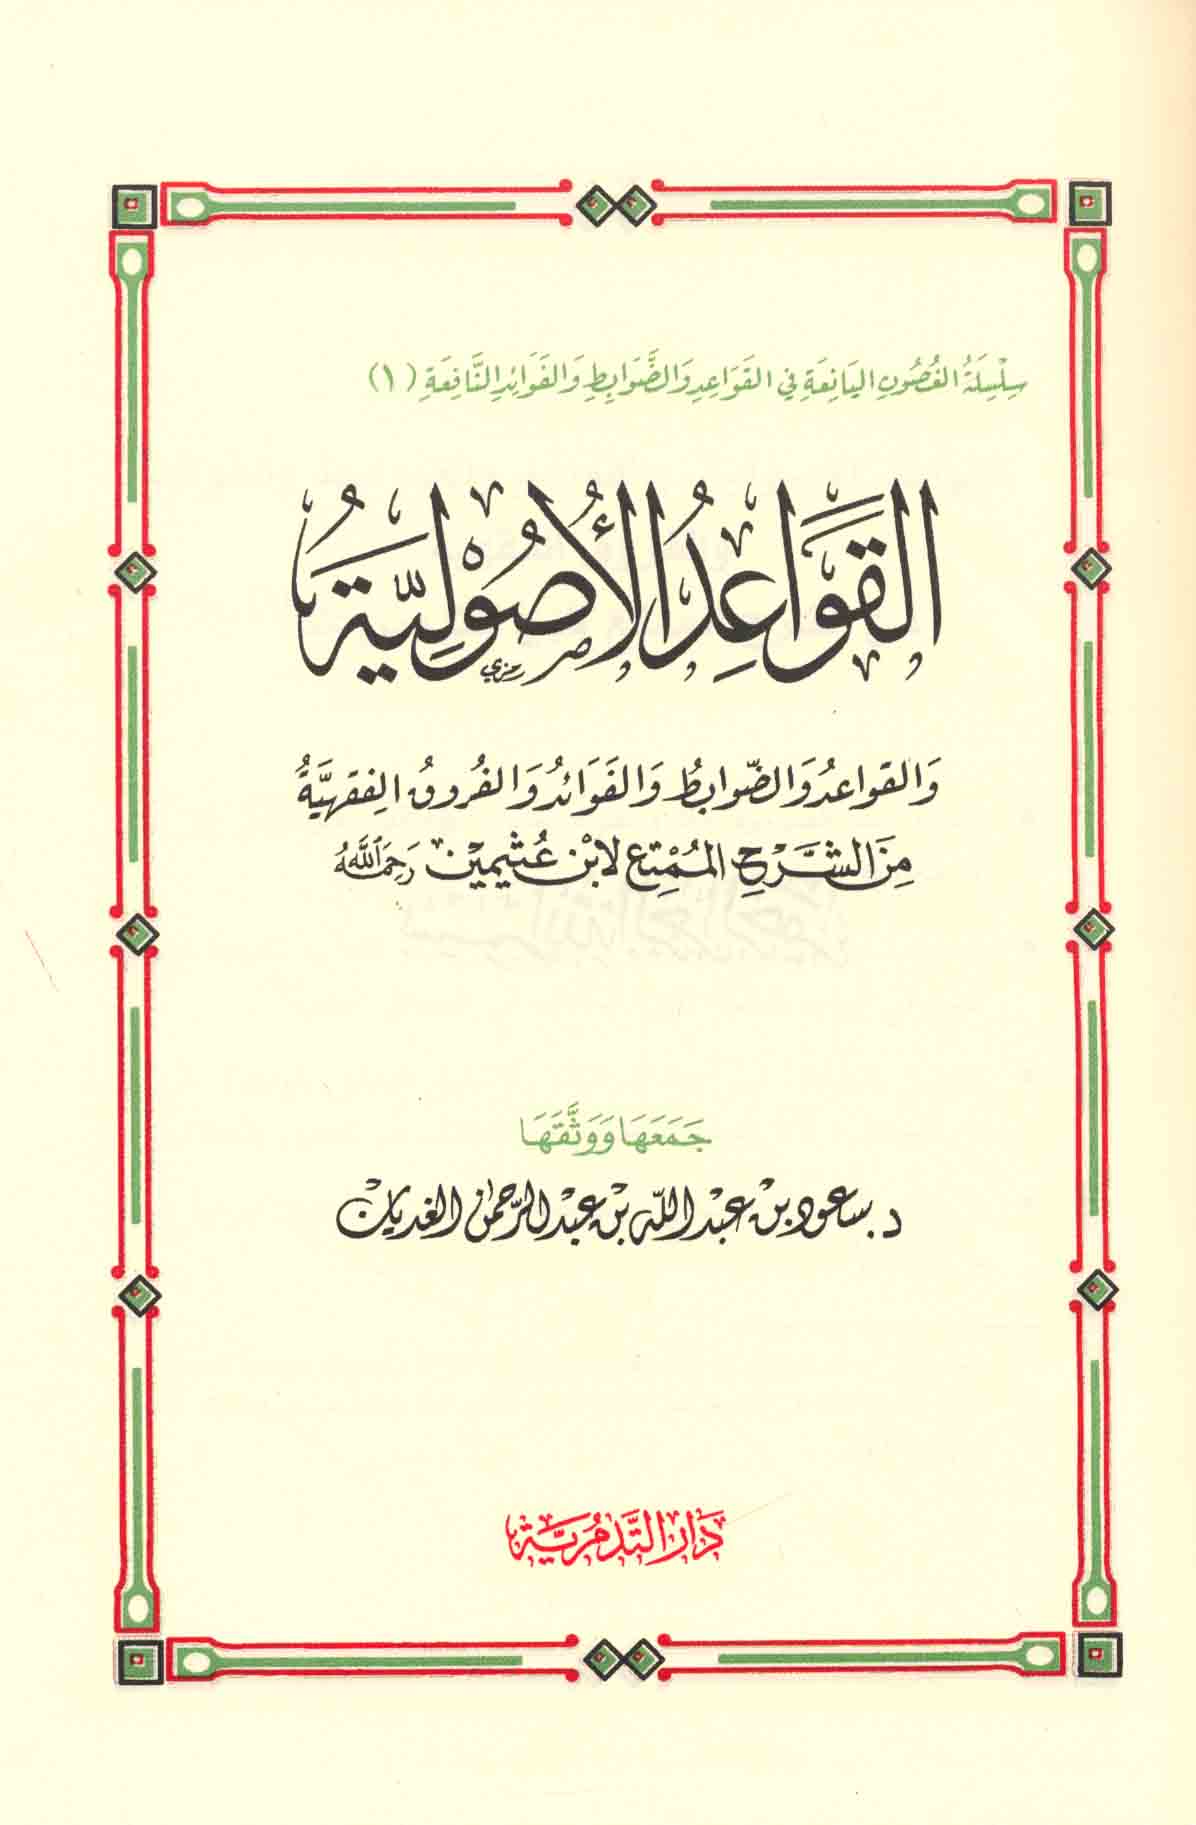 سِلْسِلَةُ الغُصُونِ اليَانِعَةِ فِي القَوَاعِدِ وَالضَّوَابِطِ وَالفَوَائِدِ النَّافِعَةِ (١)
القَوَاعِدُ الأُصُوْلِيَّةُ
وَالقواعدُ وَالضّوابطُ وَالفَوَائدُ وَالفُروقُ الفِقهيَّةُ
مِنَ الشَّرْحِ المُمْتِعِ لابْنِ عُثَيمِين رَحِمَهُ اللَّهُ
جَمَعَهَا وَوَثَّقَهَا
د. سعود بن عبد الله بن عبد الرحمن الغديان
دَارُ التَّدْمُرِيَّة